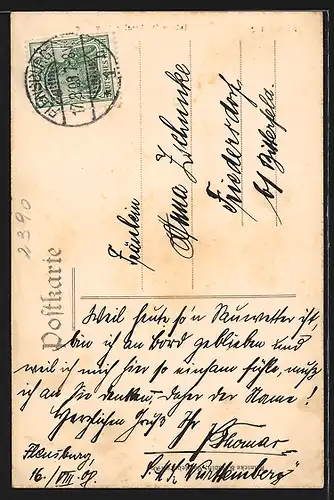 FLENSBURG
17.8.09.7-8V
Postkarte
2390
Fräulein
Anna Zschunke
Friedersdorf
b/ Bitterfeld.
Weil heute so'n Sauwetter ist,
bin ich an Bord geblieben und
weil ich mich hier so einsam fühle, muß
ich an Sie denken, daher der Name!
Herzlichen Gruß Ihr
Thomas
S.M.S. "Württemberg"
Flensburg,
16./VIII.09.